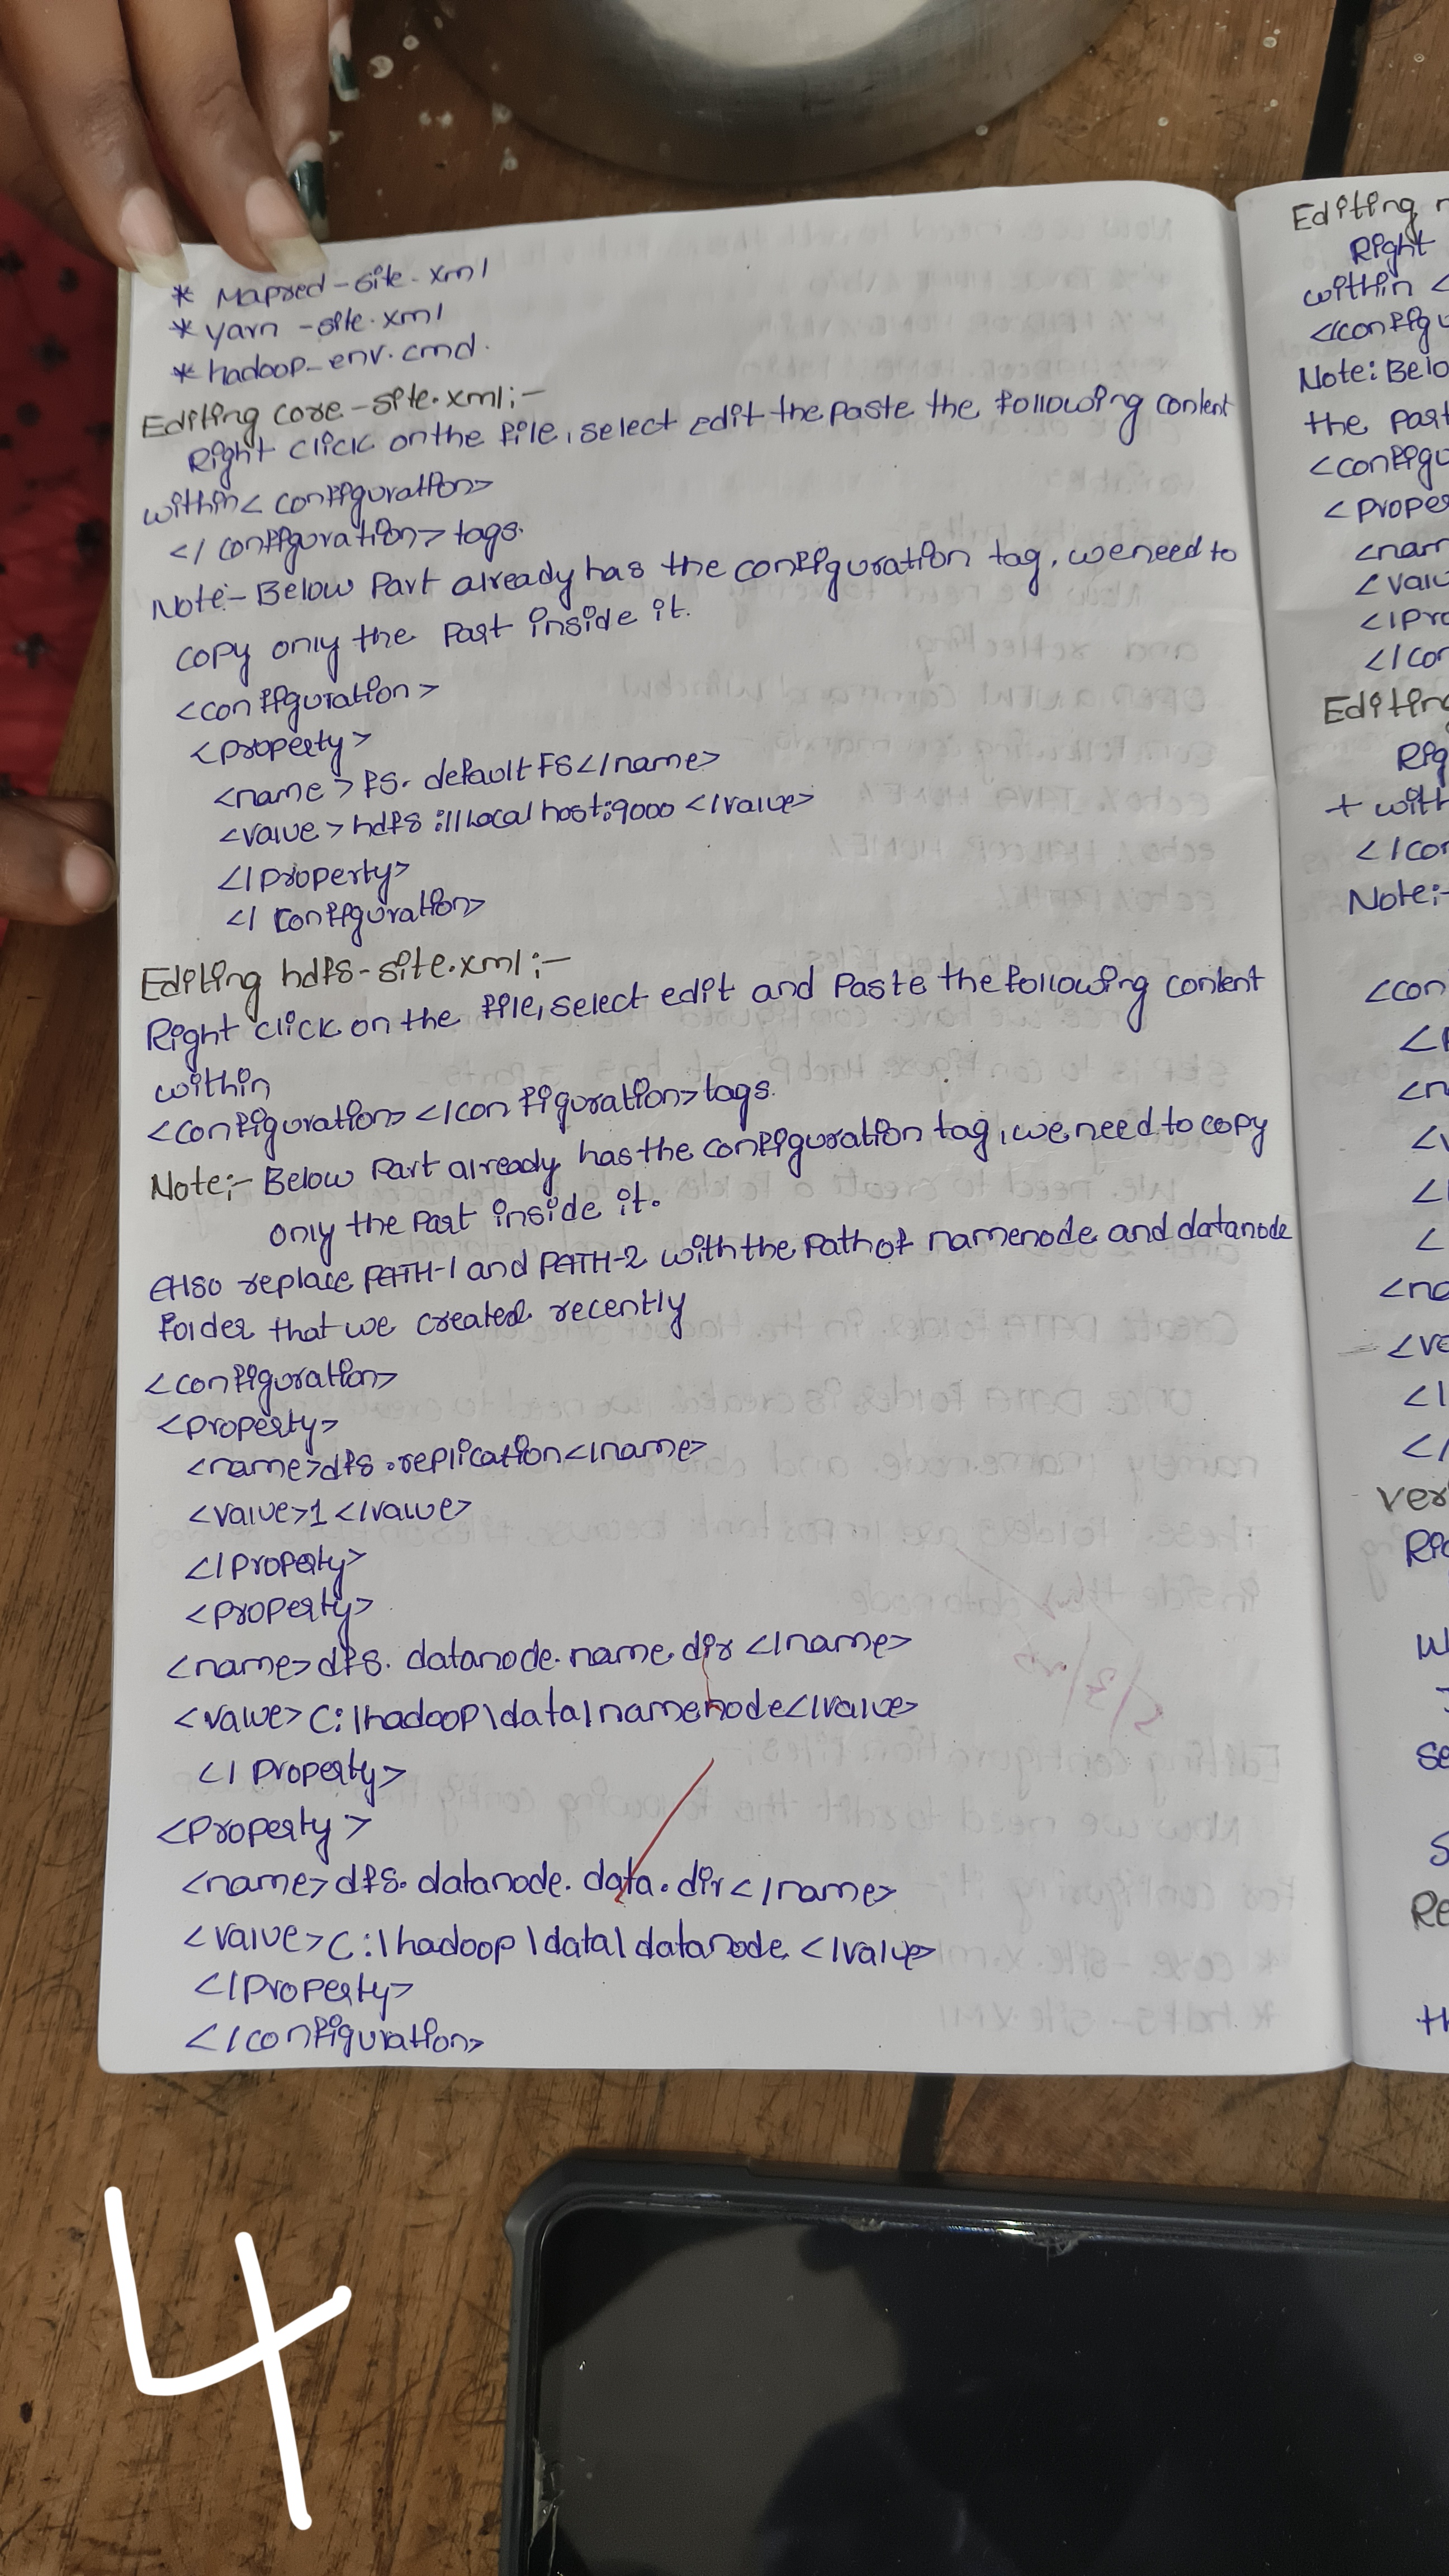 * Mapred-site.xml
* yarn -site.xml
* hadoop-env.cmd.
Editing core-site.xml:-
Right click on the file, select edit the paste the following content
within < configuration>
</ configuration> tags.
Note:- Below Part already has the configuration tag, we need to
copy only the Part inside it.
<configuration>
<property>
<name> fs. defaultFS</name>
<value> hdfs://localhost:9000 </value>
</property>
</ configuration>
Editing hdfs-site.xml:-
Right click on the file, select edit and Paste the following content
within
<configuration> </configuration> tags.
Note:- Below Part already has the configuration tag, we need to copy
only the Part inside it.
Also replace PATH-1 and PATH-2 with the Path of namenode and datanode
Folder that we created recently
<configuration>
<property>
<name>dfs.replication</name>
<value>1</value>
</property>
<property>
<name>dfs. datanode.name.dir </name>
<value> C:\hadoop\data\namenode</value>
</ Property>
<Property >
<name>dfs. datanode. data.dir</name>
<value>C:\hadoop\data\datanode </value>
</Property>
</configuration>
4
Editing
Right
within <
</configu
Note: Belo
the part
<configu
<proper
<nam
<valu
</pro
</con
Editing
Rig
+ with
</con
Note:-
<con
<p
<n
<v
</
<
<na
<va
</
</
ver
Rig
W
se
S
Re
th